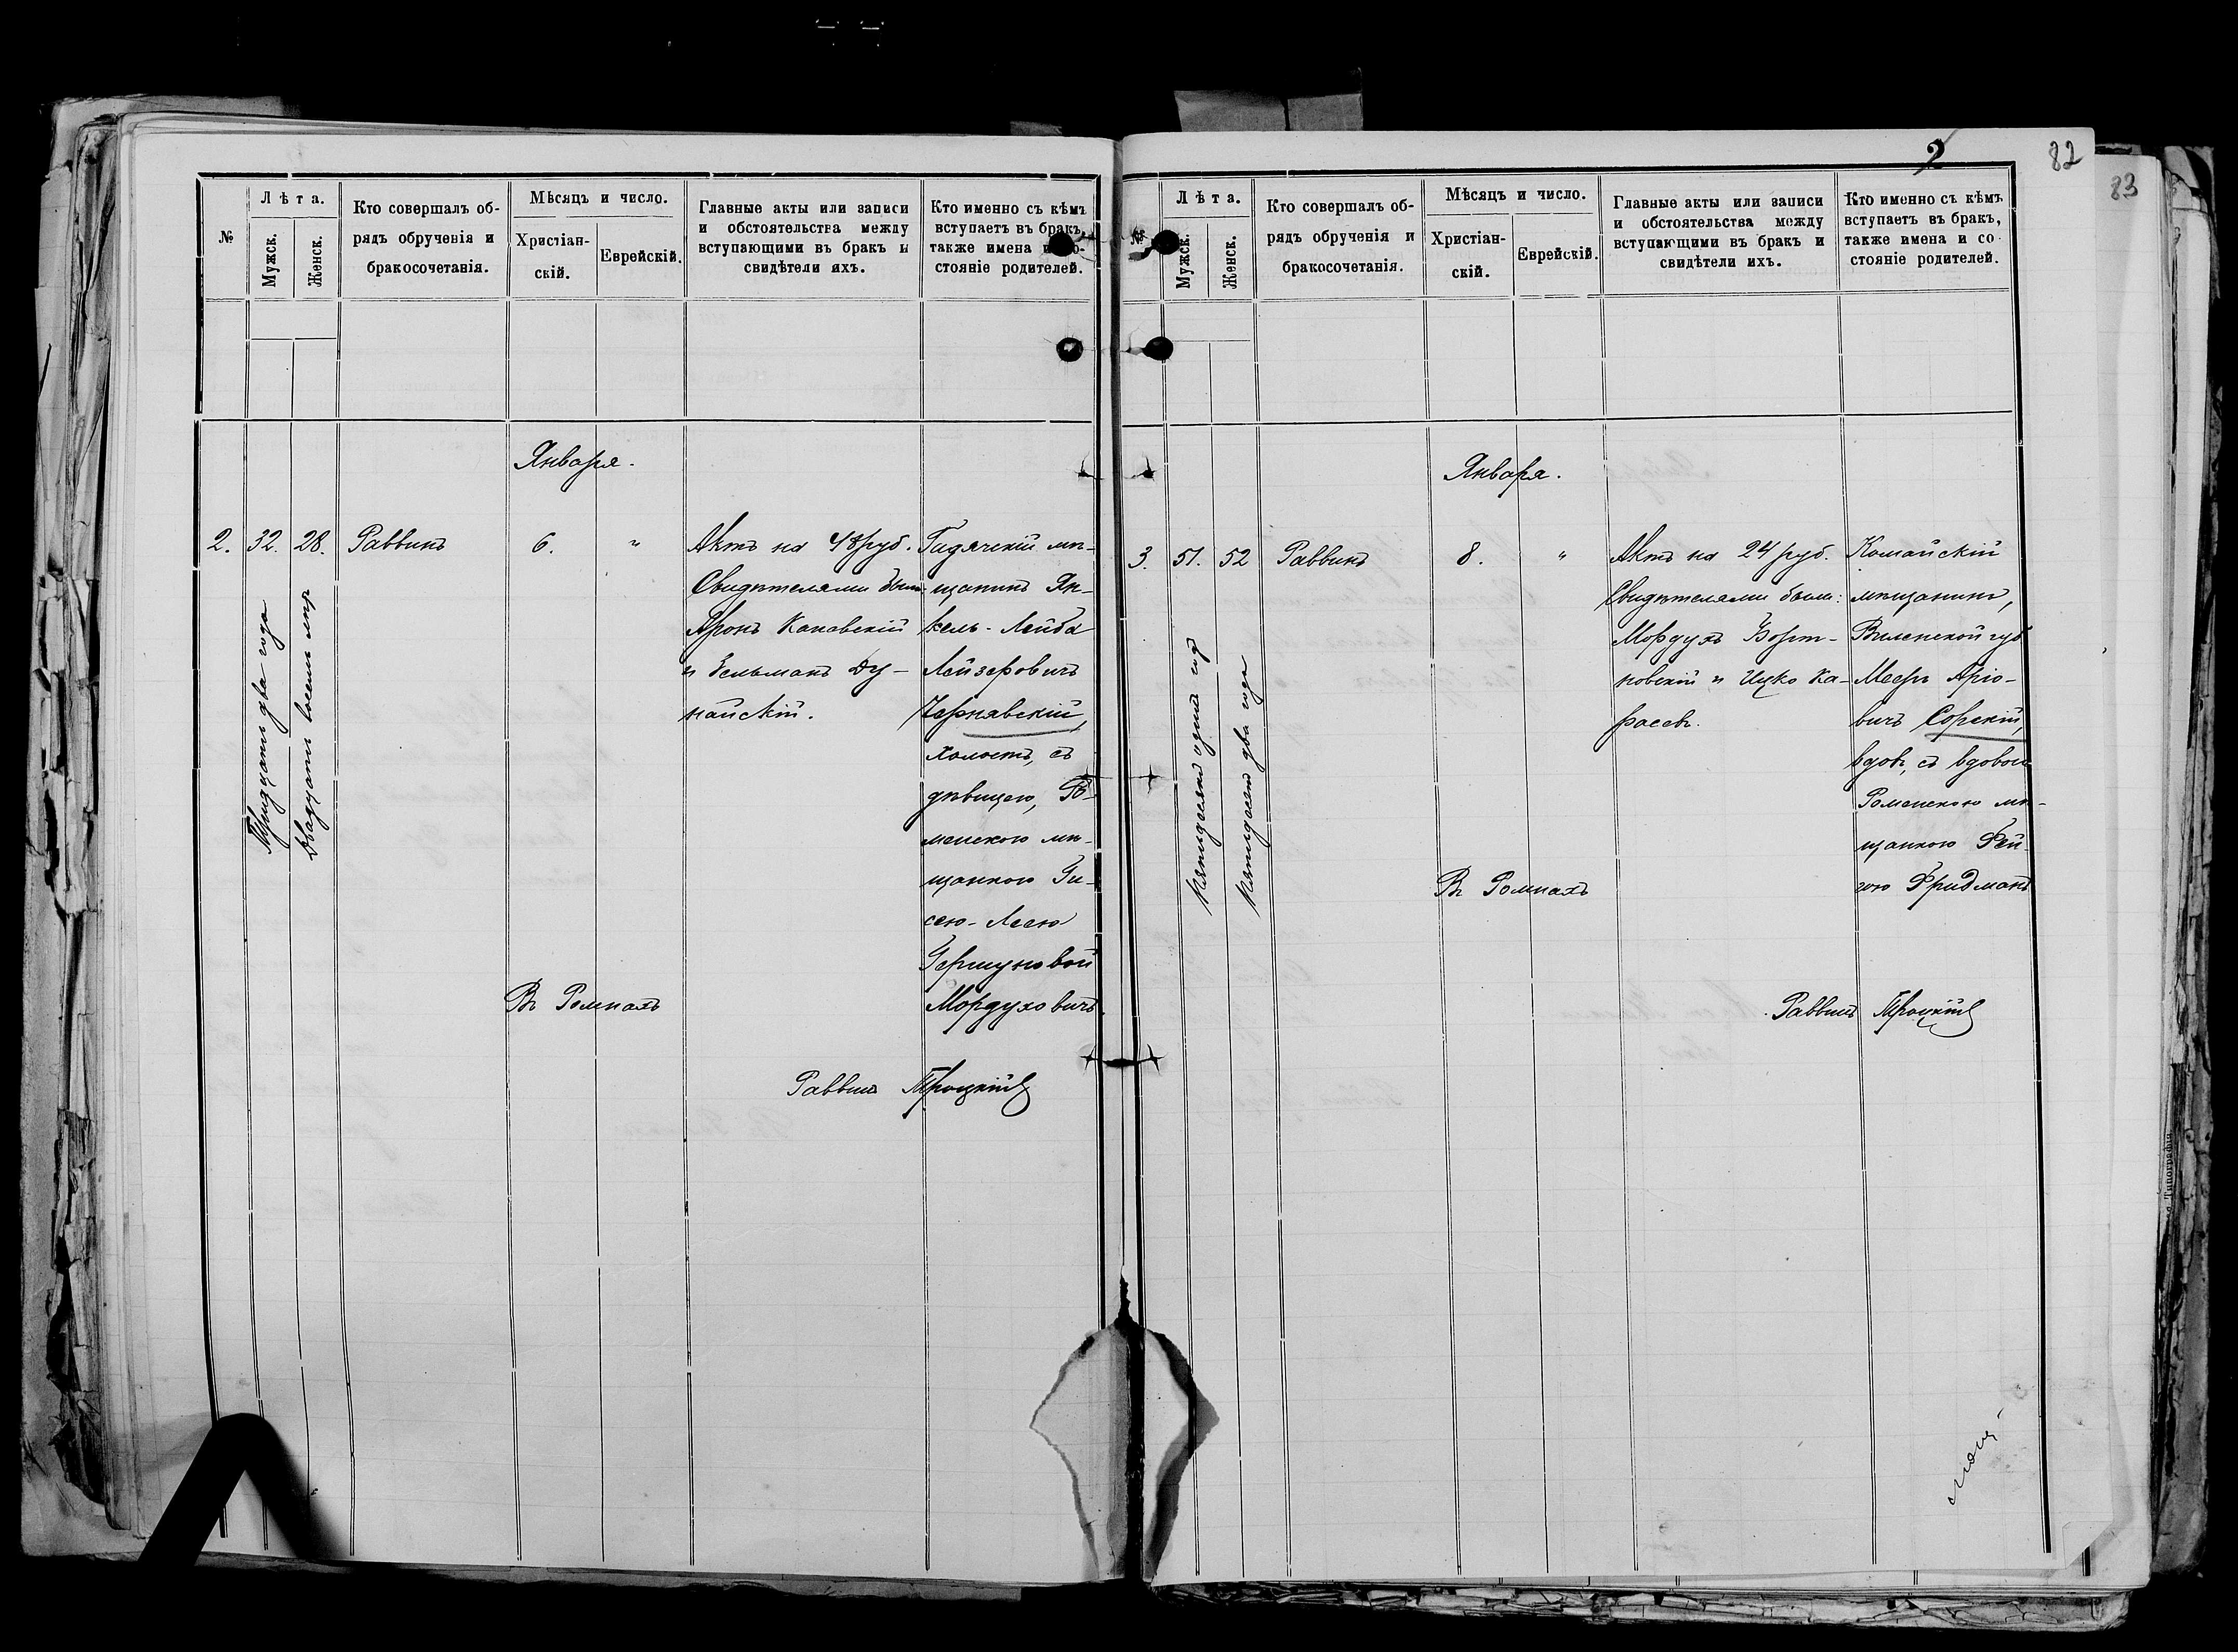 №
Лѣта.
Мужск.
Женск.
Кто совершалъ об-
рядъ обрученія и
бракосочетанія.
Мѣсяцъ и число.
Христіан-
скій.
Еврейскій.
Главные акты или записи
и обстоятельства между
вступающими въ бракъ и
свидѣтели ихъ.
Кто именно съ кѣмъ
вступаетъ въ бракъ,
также имена и со-
стояніе родителей.
Января.
2.
32.
28.
Тридцать два года
Двадцать восемь лѣтъ
Раввинъ
6.
"
Актъ на 48 руб.
Свидѣтелями были
Аронъ Каневскій
и Зельманъ Ду-
найскій.
Гадячскій мѣ-
щанинъ Ян-
кель-Лейба
Лейзеровичъ
Чернявскій,
холостъ, съ
дѣвицею, Ро-
менскою мѣ-
щанкою Ги-
сею-Леею
Гершуновой
Мордуховичъ.
Въ Ромнахъ
Раввинъ Троцкій
2
82
83
№
Лѣта.
Мужск.
Женск.
Кто совершалъ об-
рядъ обрученія и
бракосочетанія.
Мѣсяцъ и число.
Христіан-
скій.
Еврейскій.
Главные акты или записи
и обстоятельства между
вступающими въ бракъ и
свидѣтели ихъ.
Кто именно съ кѣмъ
вступаетъ въ бракъ,
также имена и со
стояніе родителей.
Января.
3.
51.
52
Пятьдесятъ одинъ годъ
Пятьдесятъ два года
Раввинъ
8.
"
Актъ на 24 руб.
Свидѣтелями были:
Мордухъ Борт-
новскій и Ицко Ка-
расевъ.
Комайскій
мѣщанинъ,
Виленской губ
Мееръ Аріо-
вичъ Сорскій,
вдовъ, съ вдовою
Роменскою мѣ-
щанкою Фей-
гою Фридманъ
Въ Ромнахъ
Раввинъ Троцкій
Типографія